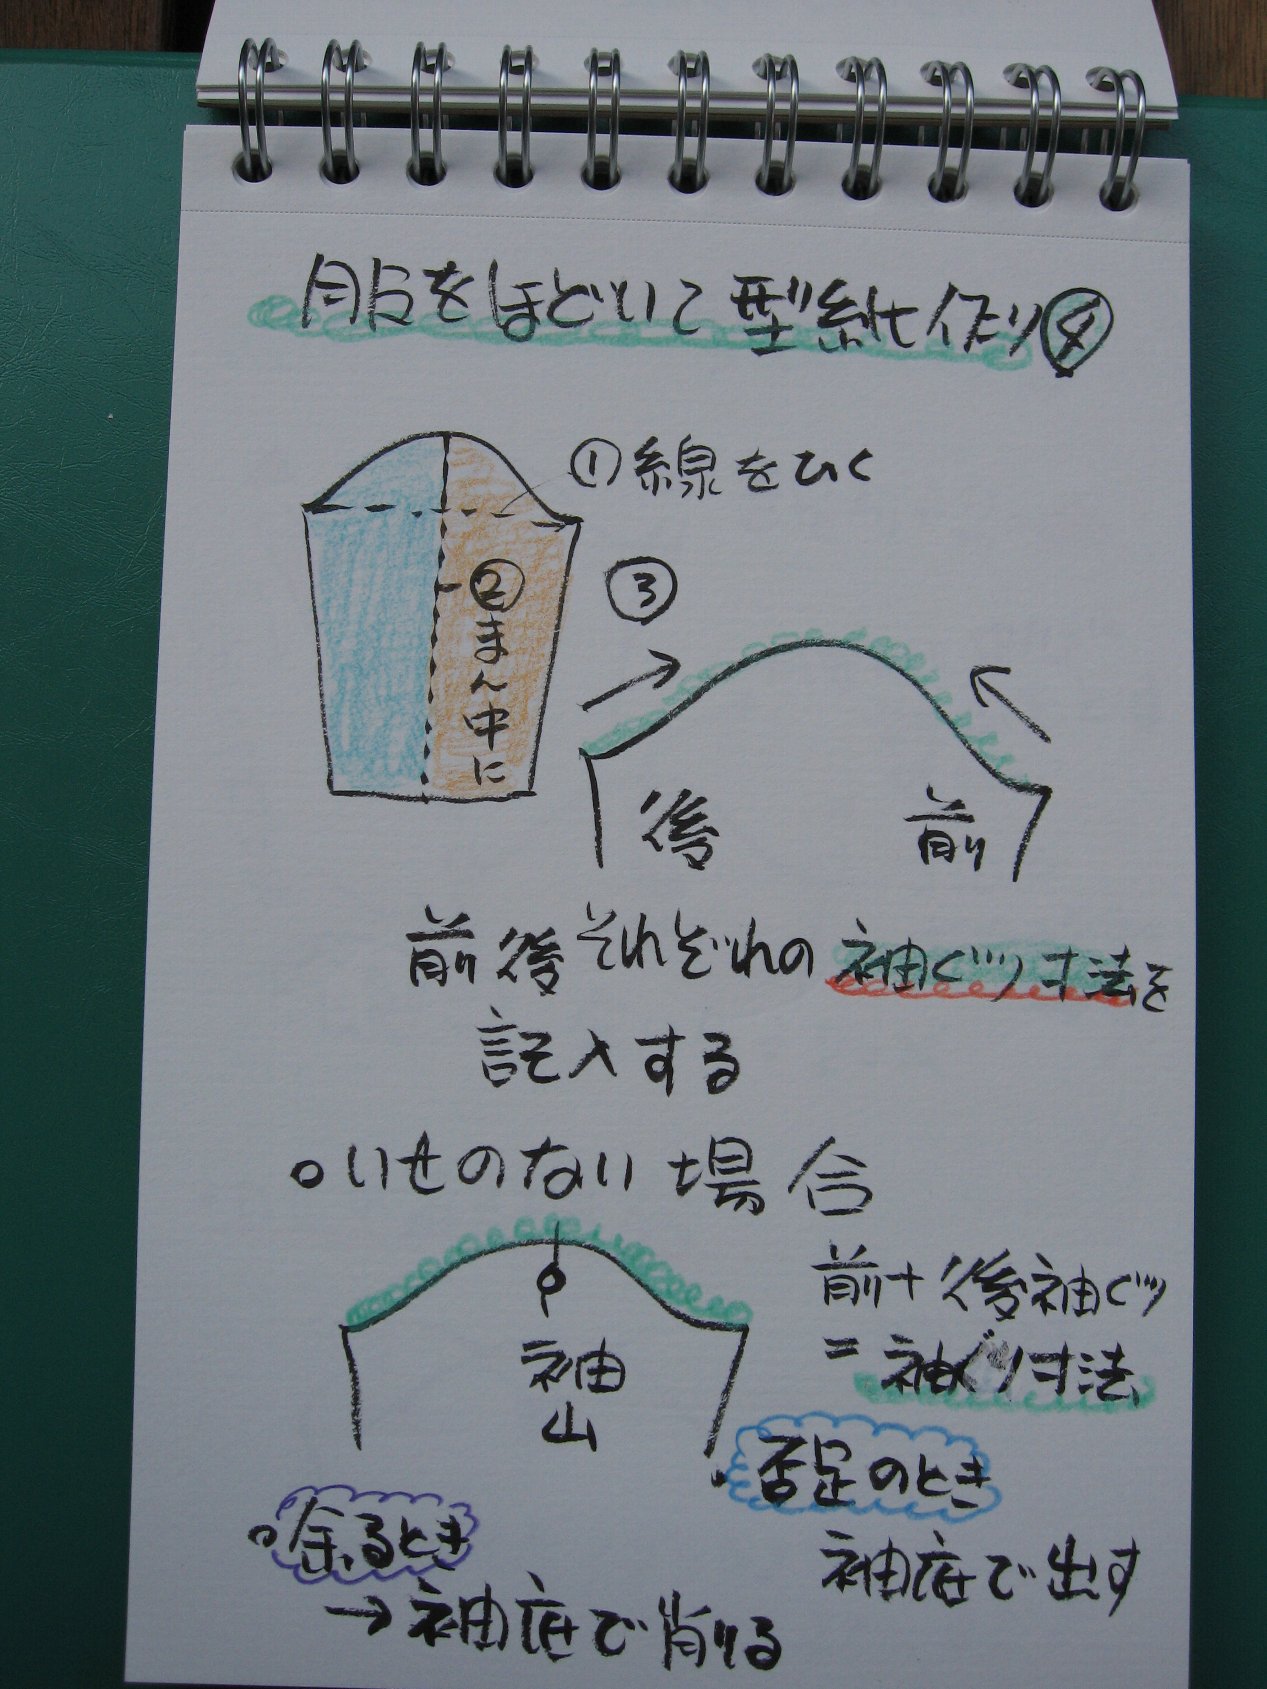 服をほどいて型紙作り④
①線をひく
②まん中に
③
後
前
前後それぞれの袖ぐり寸法を
記入する
○いせのない場合
前+後袖ぐり
=袖ぐり寸法
袖山
不足のとき
袖底で出す
○余るとき
→袖底で削る